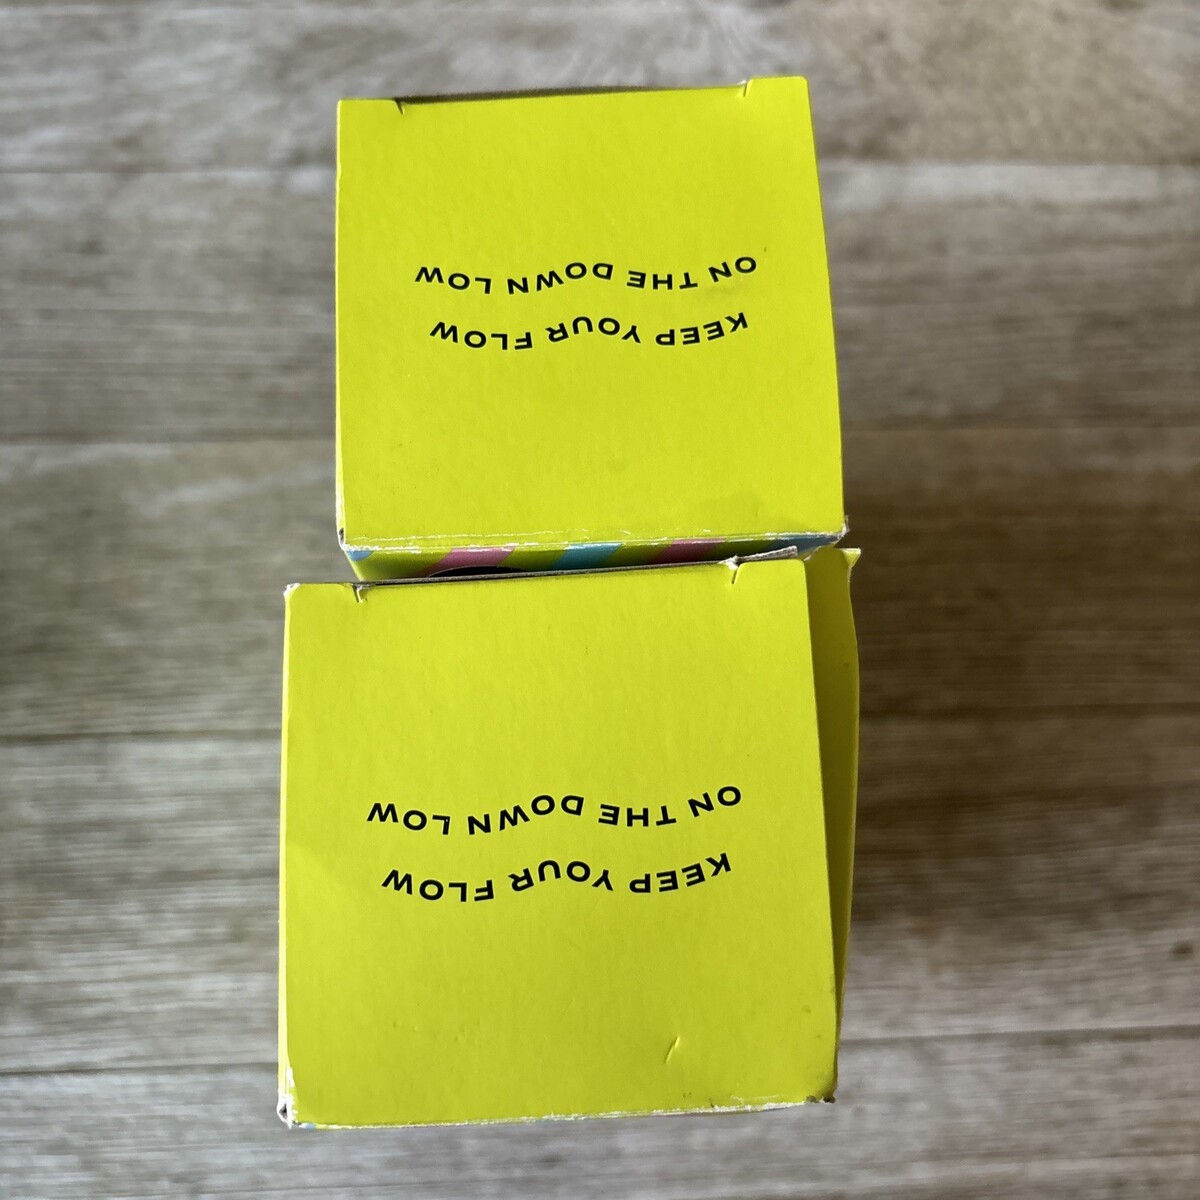 KEEP YOUR FLOW
ON THE DOWN LOW
KEEP YOUR FLOW
ON THE DOWN LOW